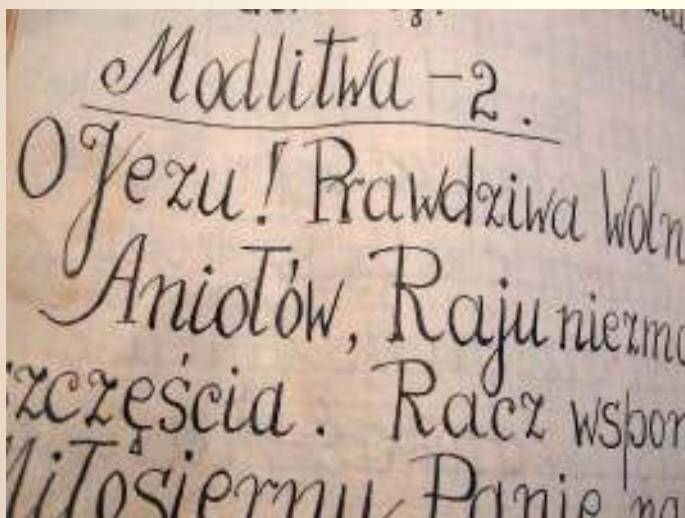 Modlitwa – 2.
O Jezu! Prawdziwa Woln
Aniołów, Raju niezmo
szczęścia. Racz wspom
Miłosierny Panie na